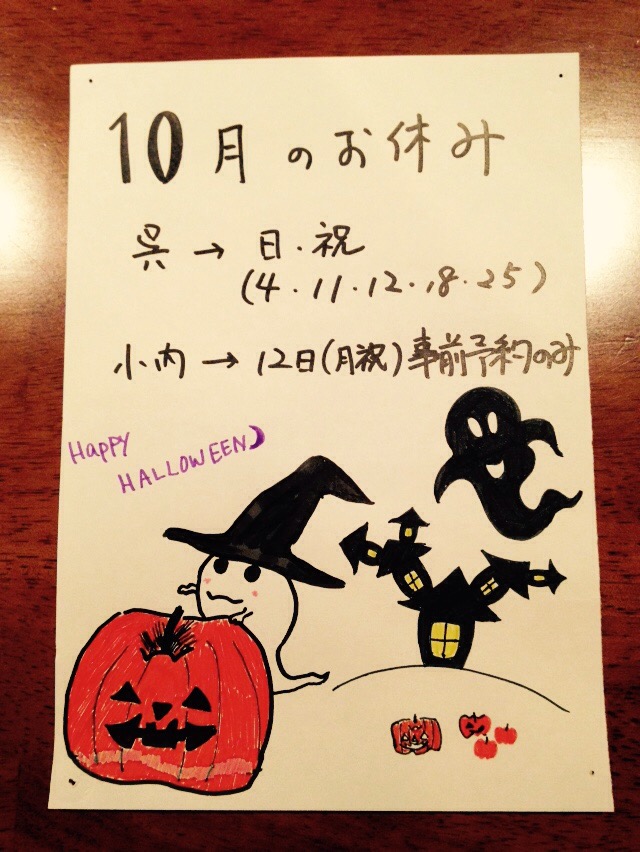 10月のお休み
呉→日・祝
(4・11・12・18・25)
小内→12日(月祝)事前予約のみ
Happy
HALLOWEEN